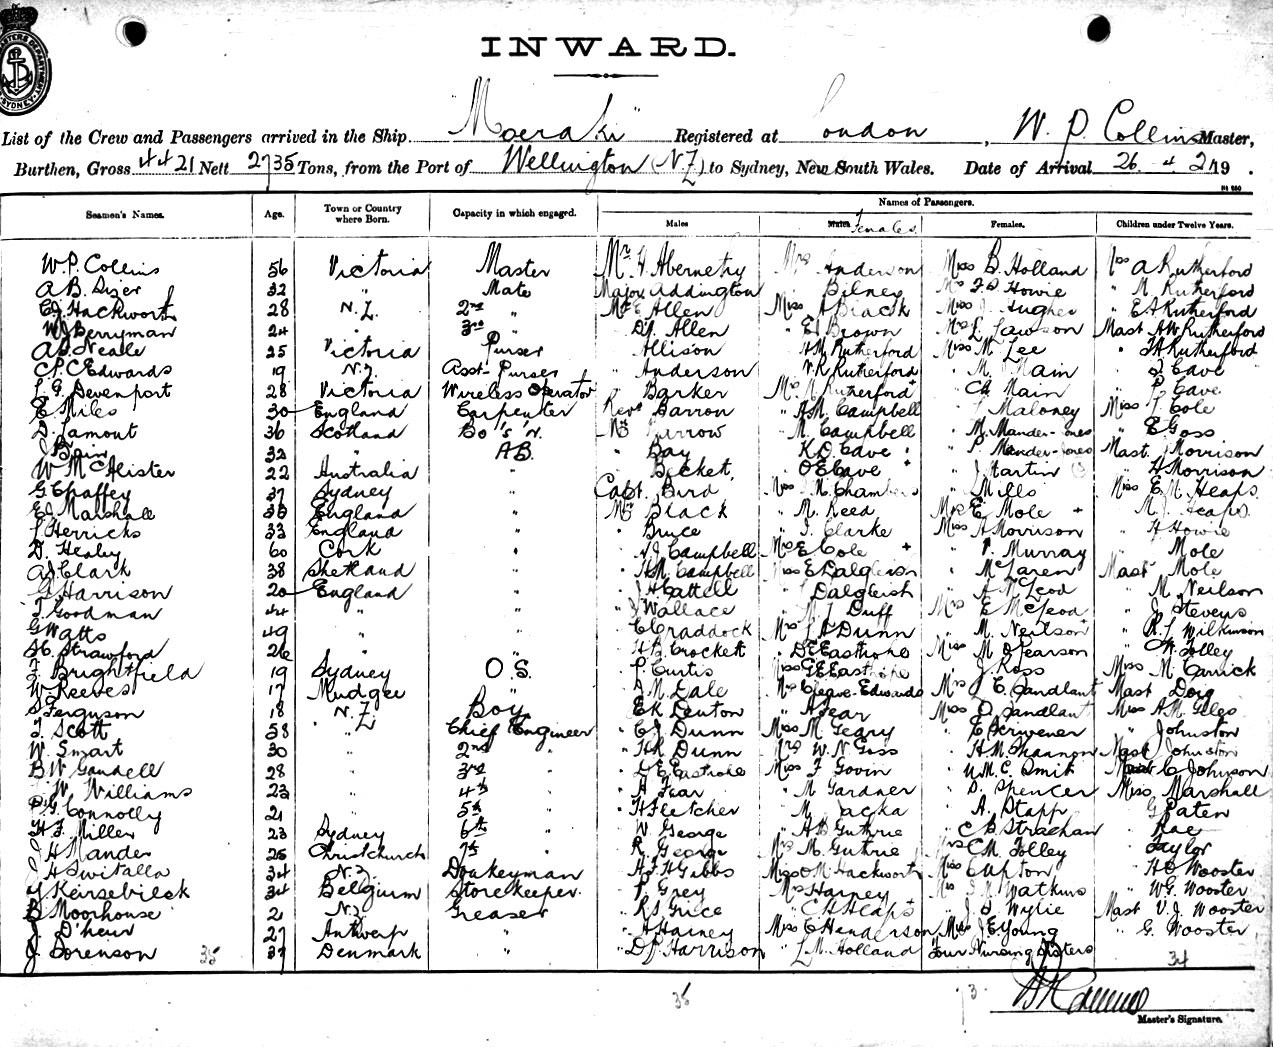 INWARD.
List of the Crew and Passengers arrived in the Ship "Moeraki" Registered at London, W. P. Collins Master,
Burthen, Gross 4421 Nett 2735 Tons, from the Port of Wellington (N.Z) to Sydney, New South Wales. Date of Arrival 26 . 4 . 2/19 .
Names of Passengers.
Seamen's Names. Age. Town or Country where Born. Capacity in which engaged. Males Males Females. Females. Children under Twelve Years.
W. P. Collins 56 Victoria Master Mr. Abernethy Mrs Anderson Miss B. Holland Miss A Rutherford
A B. 32 " Mate Major Addington " Bilney Howie " M. Rutherford
Hackworth 28 N.Z. 2nd " Mr E Allen Miss A Black Miss J Hughes " E A Rutherford
W J Berryman 24 " 3rd " Allen " E J Brown Mrs L. Lawson Mast AW Rutherford
Neale 25 Victoria Purser " Allison " A M Rutherford Miss M Lee " Rutherford
C P C Edwards 19 N.Z. Asst. Purser " Anderson V K Rutherford " M. Main Cave
G. Devenport 28 Victoria Wireless Operator " Barker Rutherford " Main " Cave
E Miles 30 England Carpenter Revd Barron " A M. Campbell Maloney Miss Cole
D. Lamont 36 Scotland Bo's'n. Mr M. Campbell " M. Mander-Jones " E Goss
J Bain 32 " A.B. " Bay " K D. Cave " P Mander-Jones Mast. J Morrison
W McAlister 22 Australia " " Becket, " O E Cave " J Martin " H Morrison
G Chaffey 37 Sydney " Capt. Bird M. Chambers " J Mills Miss E M. Heaps
E J Marshall England " Mr Black " M. Reed Mrs E Mole " M. J. Heaps.
Herricks 33 England " " Bruce " J. Clarke Miss A Morrison " H Howie
D. Healy 60 Cork " Campbell Mrs E Cole " Murray " Mole
A J Clark 38 Shetland " " H M. Campbell Miss E Dalgleish " McLaren Mast Mole
G Harrison 20 England " " J H Cattell " Dalgleish " McLeod " M. Neilson
T Goodman 44 " " " J Wallace " M J Duff Mrs E McLeod " J Stevens
G Watts 49 " " " C Craddock Mrs Dunn " M. Neilson " R. J. Wilkinson
H C. Strawford 26 " " " H B. Crockett " D E Eastroke Miss M D Pearson " Jolley
Brightfield 19 Sydney O.S. " Curtis Miss G E Eastroke " J Ross Miss M. Carrick
W Reeves 17 Mudgee " " M. Dale Mrs Cleave-Edwards Mrs C. Jandlant Mast Doig
Ferguson 18 N.Z Boy " E K Denton " A Fear Miss D Jandlant Miss A M. Giles
T. Scott 38 " Chief Engineer " C J. Dunn Miss M Geary " E Scrivener " Johnston
W. Smart 30 " 2nd " " H R Dunn Mrs W. N Goss " A. M. Shannon Mast Johnston
B W Gandell 28 " 3rd " " D E Eastroke Miss F Govin " U M. C. Smit C Johnson
W Williams 23 " 4th " " A Fear " M Gardner " D. Spencer Miss Marshall
Connolly 21 " 5th " " H Fletcher " M. Jacka " A. Stapp G Paten
H J. Miller 23 Sydney 6th " " W. George " A B Guthrie " C B. Strachan " Rae
J H Mander 25 Christchurch 7th " " R. George Mrs M. Guthrie Mrs C M. Jolley Taylor
J H Switalla 34 N.Z. Donkeyman " A J H Gibbs Miss O M Hackworth Miss E Upton " H C Wooster
Keirsebilck 34 Belgium Storekeeper. " Grey Mrs Harvey Watkins " W G. Wooster
B Moorhouse 21 N.Z. Greaser " R S Grice " C H Heaps " J. S Wylie Mast V. J. Wooster
J D'heur 27 Antwerp " " A Haney Miss C Henderson Miss J E Young " G. Wooster
J. Sorenson 37 Denmark " " D J. Harrison " L M. Holland Four Nursing Sisters
35 34
36 73
Master's Signature.